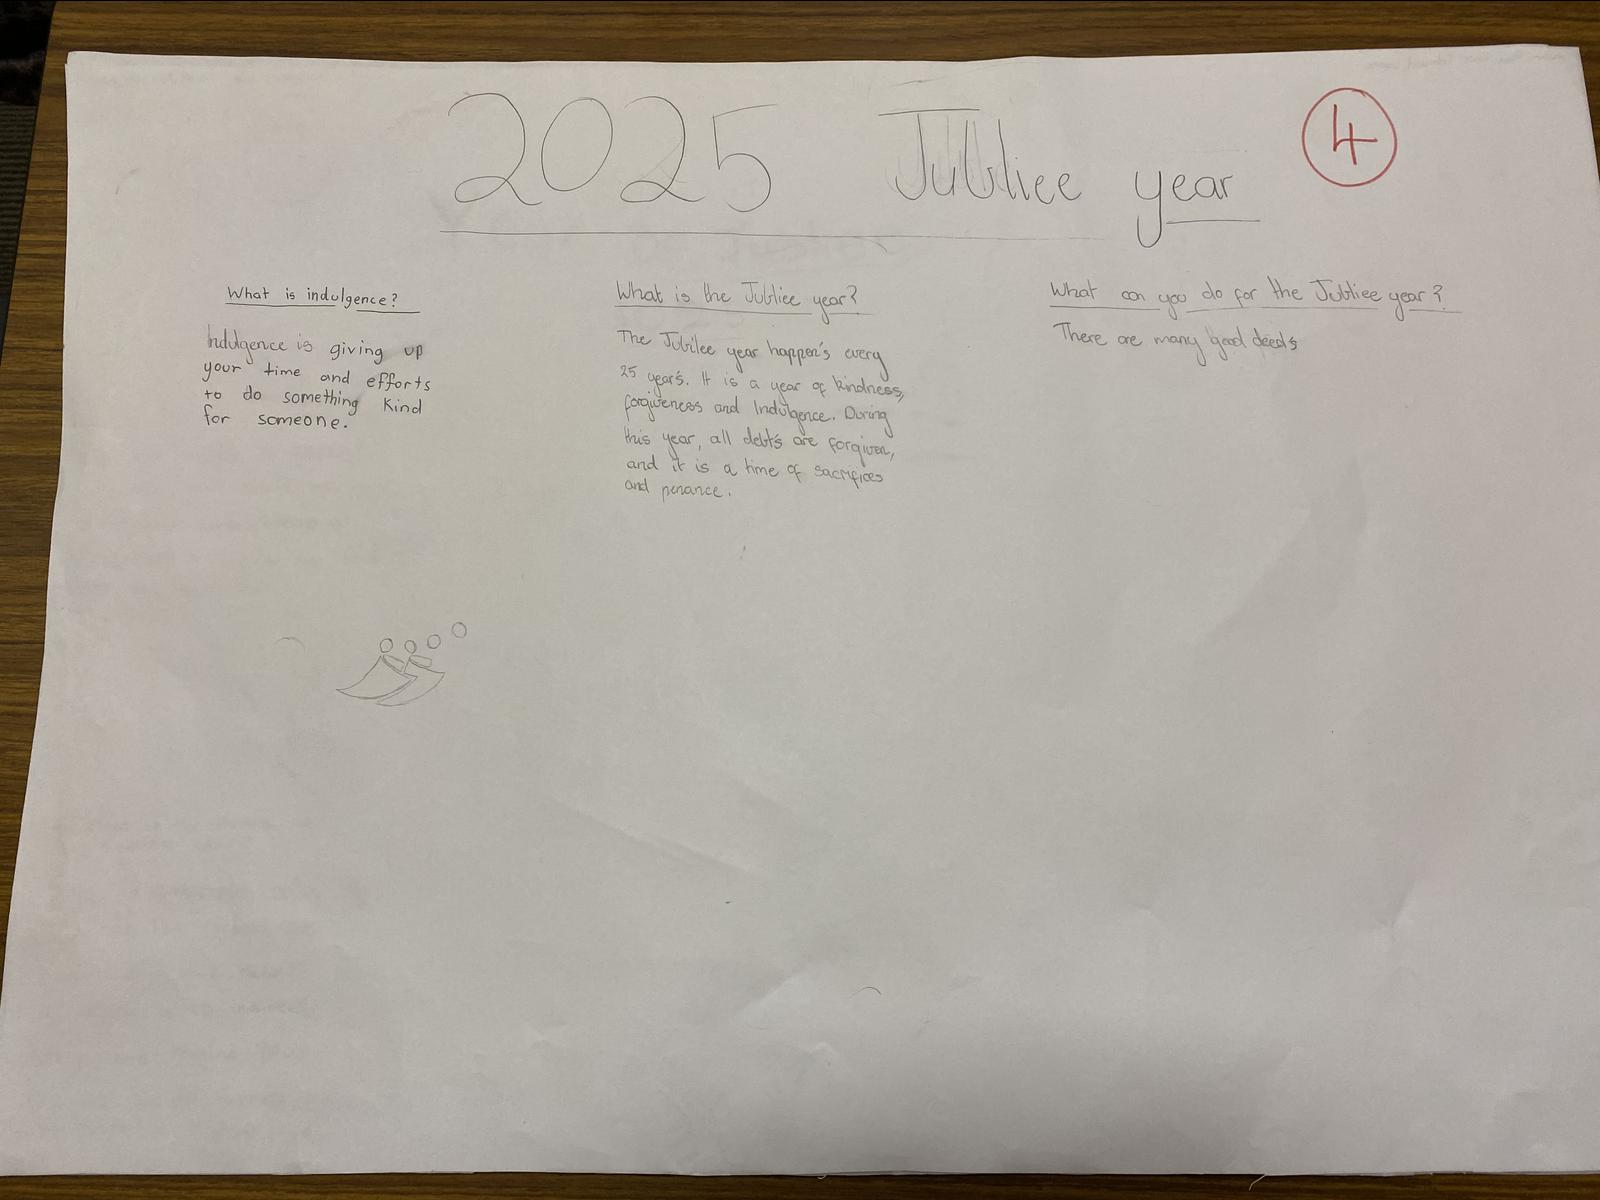 2025 Jubliee year
4
What is indulgence?
Indulgence is giving up
your time and efforts
to do something kind
for someone.
What is the Jubliee year?
The Jubilee year happen's every
25 year's. It is a year of kindness,
forgiveness and Indulgence. During
this year, all debt's are forgiven,
and it is a time of sacrifices
and penance.
What can you do for the Jubliee year?
There are many good deed's